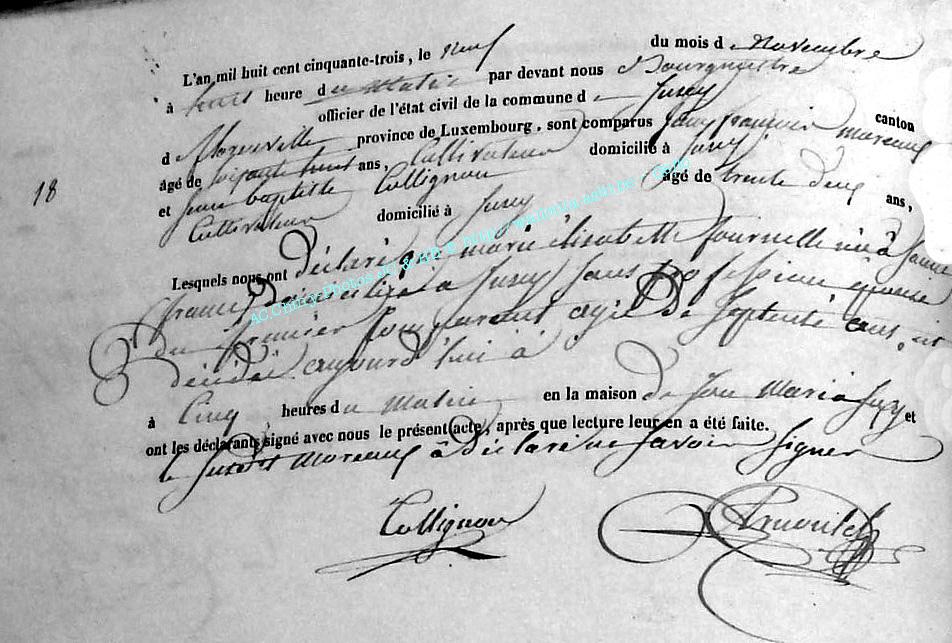 L'an mil huit cent cinquante-trois, le neuf du mois d e novembre
à huit heure du matin par devant nous Bourgmestre
officier de l'état civil de la commune d e Juzey canton
d province de Luxembourg, sont comparus françois moreaux
âgé de soixante huit ans, Cultivateur domicilié à Juzey
et jean baptiste Collignon âgé de trente deux ans,
Cultivateur domicilié à Juzey
18
Lesquels nous ont déclaré que marie élisabeth née à
france domiciliée à Juzey sans profession épouse
du premier comparant agée de septente ans, est
décédée aujourd'hui à
à Cinq heures du matin en la maison de Jean et
ont les déclarants signé avec nous le présent acte, après que lecture leur en a été faite.
le susdit moreaux à déclaré ne savoir signer
Collignon
AC.Chiny-Photos